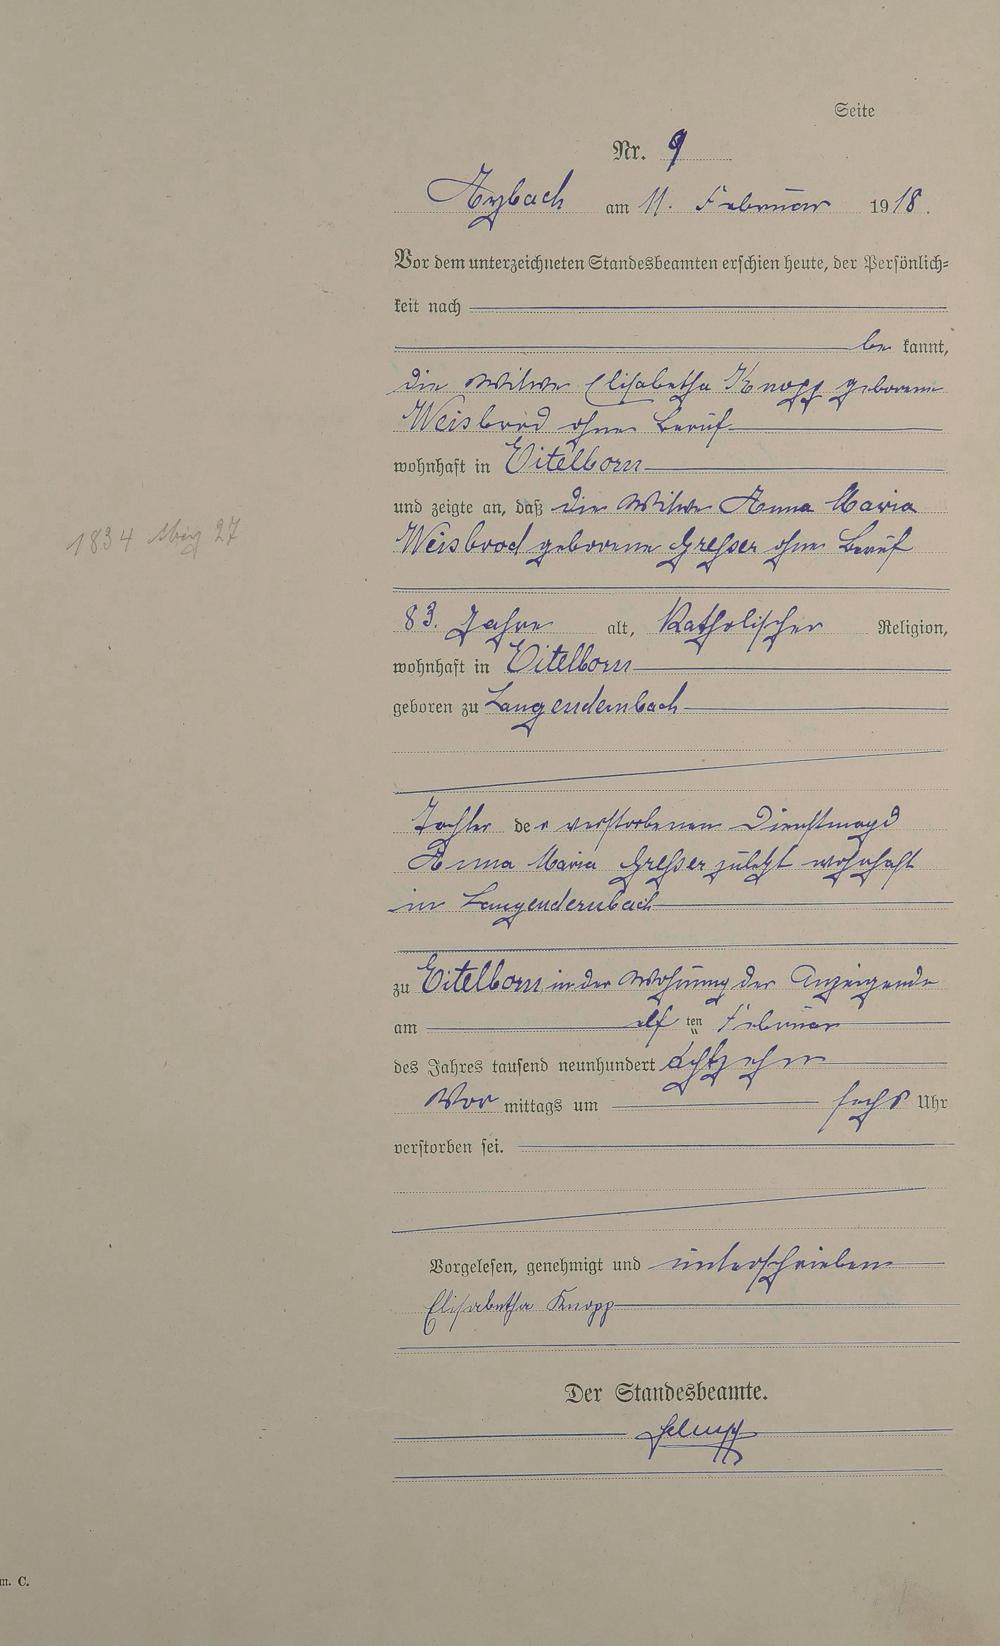 Seite
Nr. 9
Arzbach am 11. Februar 1918.
Vor dem unterzeichneten Standesbeamten erschien heute, der Persönlich-
keit nach
be kannt,
die Witwe Elisabetha Knopp geborene
Weisbrod ohne Beruf
wohnhaft in Eitelborn
und zeigte an, daß die Witwe Anna Maria
Weisbrod geborene Gresser ohne Beruf
1834 27
83. Jahre alt, Katholischer Religion,
wohnhaft in Eitelborn
geboren zu Langendernbach
Tochter der verstorbenen Dienstmagd
Anna Maria Gresser zuletzt wohnhaft
in Langendernbach
zu Eitelborn in der Wohnung der Anzeigende
am elf ten Februar
des Jahres tausend neunhundert achtzehn
Vor mittags um sechs Uhr
verstorben sei.
Vorgelesen, genehmigt und unterschrieben
Elisabetha Knopp
Der Standesbeamte.
m. C.